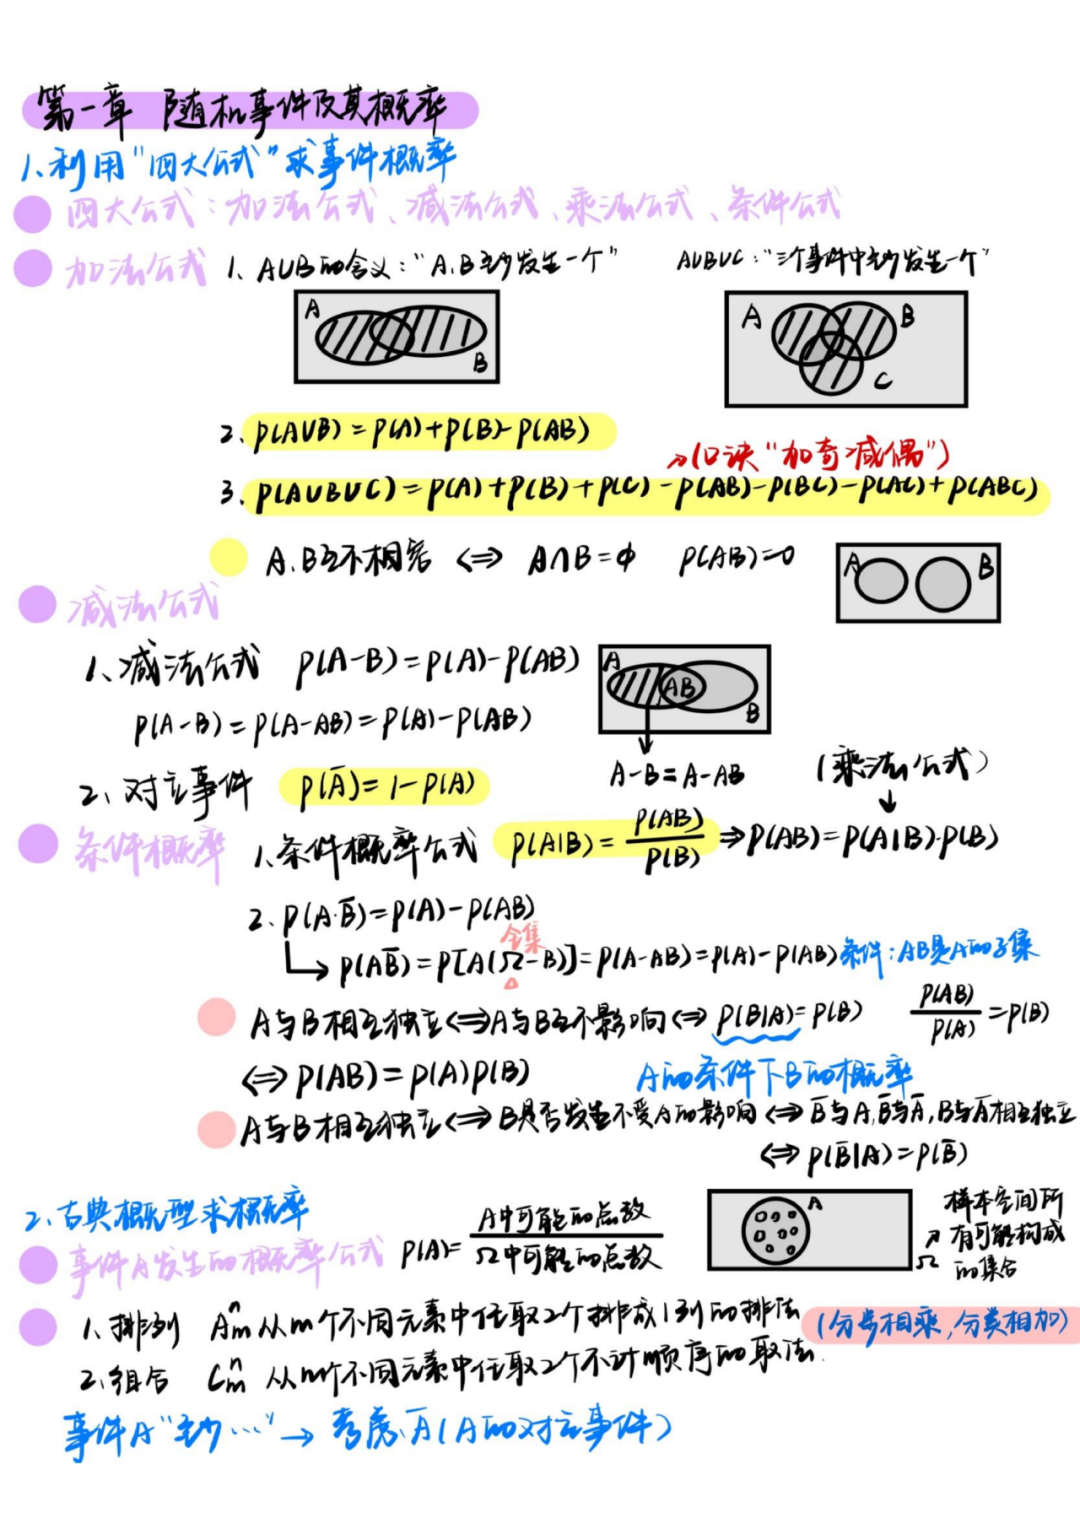 第一章 随机事件及其概率
1.利用"四大公式"求事件概率
四大公式:加法公式、减法公式、乘法公式、条件公式
加法公式 1. A∪B的含义:"A.B至少发生一个" A∪B∪C:"三个事件中至少发生一个"
A B
A B C
2. P(A∪B)=P(A)+P(B)-P(AB)
→(口诀"加奇减偶")
3. P(A∪B∪C)=P(A)+P(B)+P(C)-P(AB)-P(BC)-P(AC)+P(ABC)
A.B互不相容 ⇔ A∩B=φ P(AB)=0
A B
减法公式
1.减法公式 P(A-B)=P(A)-P(AB)
A AB B
P(A-B)=P(A-AB)=P(A)-P(AB)
A-B=A-AB
(乘法公式)
2.对立事件 P(Ā)=1-P(A)
条件概率 1.条件概率公式 P(A|B)=P(AB)/P(B) ⇒P(AB)=P(A|B)·P(B)
2. P(A·B̄)=P(A)-P(AB)
全集
→P(AB̄)=P[A(Ω-B)]=P(A-AB)=P(A)-P(AB) 条件:AB是A的子集
A与B相互独立⇔A与B互不影响⇔P(B|A)=P(B) P(AB)/P(A)=P(B)
⇔P(AB)=P(A)P(B) A的条件下B的概率
A与B相互独立⇔B是否发生不受A的影响⇔B̄与A,B̄与Ā,B与Ā相互独立
⇔P(B̄|A)=P(B̄)
2.古典概型求概率
事件A发生的概率公式 P(A)=A中可能的点数/Ω中可能的点数
A
Ω
样本空间所
有可能构成
的集合
1.排列 Aₘⁿ 从m个不同元素中任取n个排成1列的排法 (分步相乘,分类相加)
2.组合 Cₘⁿ 从m个不同元素中任取n个不计顺序的取法.
事件A"至少…"→考虑Ā(A的对立事件)